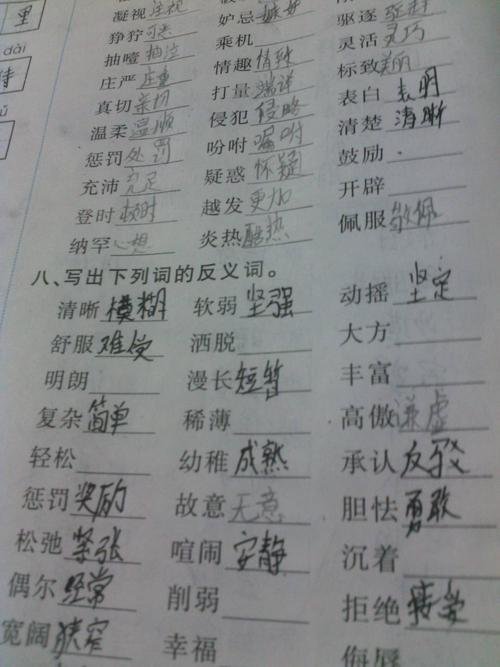 里
dài
待
凝视 注视 妒忌 嫉妒 驱逐 驱赶
狰狞 可恶 乘机 灵活 灵巧
抽噎 抽泣 情趣 情致 标致 美丽
庄严 庄重 打量 端详 表白 表明
真切 亲切 侵犯 侵略 清楚 清晰
温柔 温顺 吩咐 嘱咐 鼓励
惩罚 处罚 疑惑 怀疑 开辟
充沛 充足 越发 更加 佩服 敬佩
登时 顿时 炎热 酷热
纳罕
八、写出下列词的反义词。
清晰 模糊 软弱 坚强 动摇 坚定
舒服 难受 洒脱 大方
明朗 漫长 短暂 丰富
复杂 简单 稀薄 高傲 谦虚
轻松 幼稚 成熟 承认 反驳
惩罚 奖励 故意 无意 胆怯 勇敢
松弛 紧张 喧闹 安静 沉着
偶尔 经常 削弱 拒绝
宽阔 狭窄 幸福 侮辱